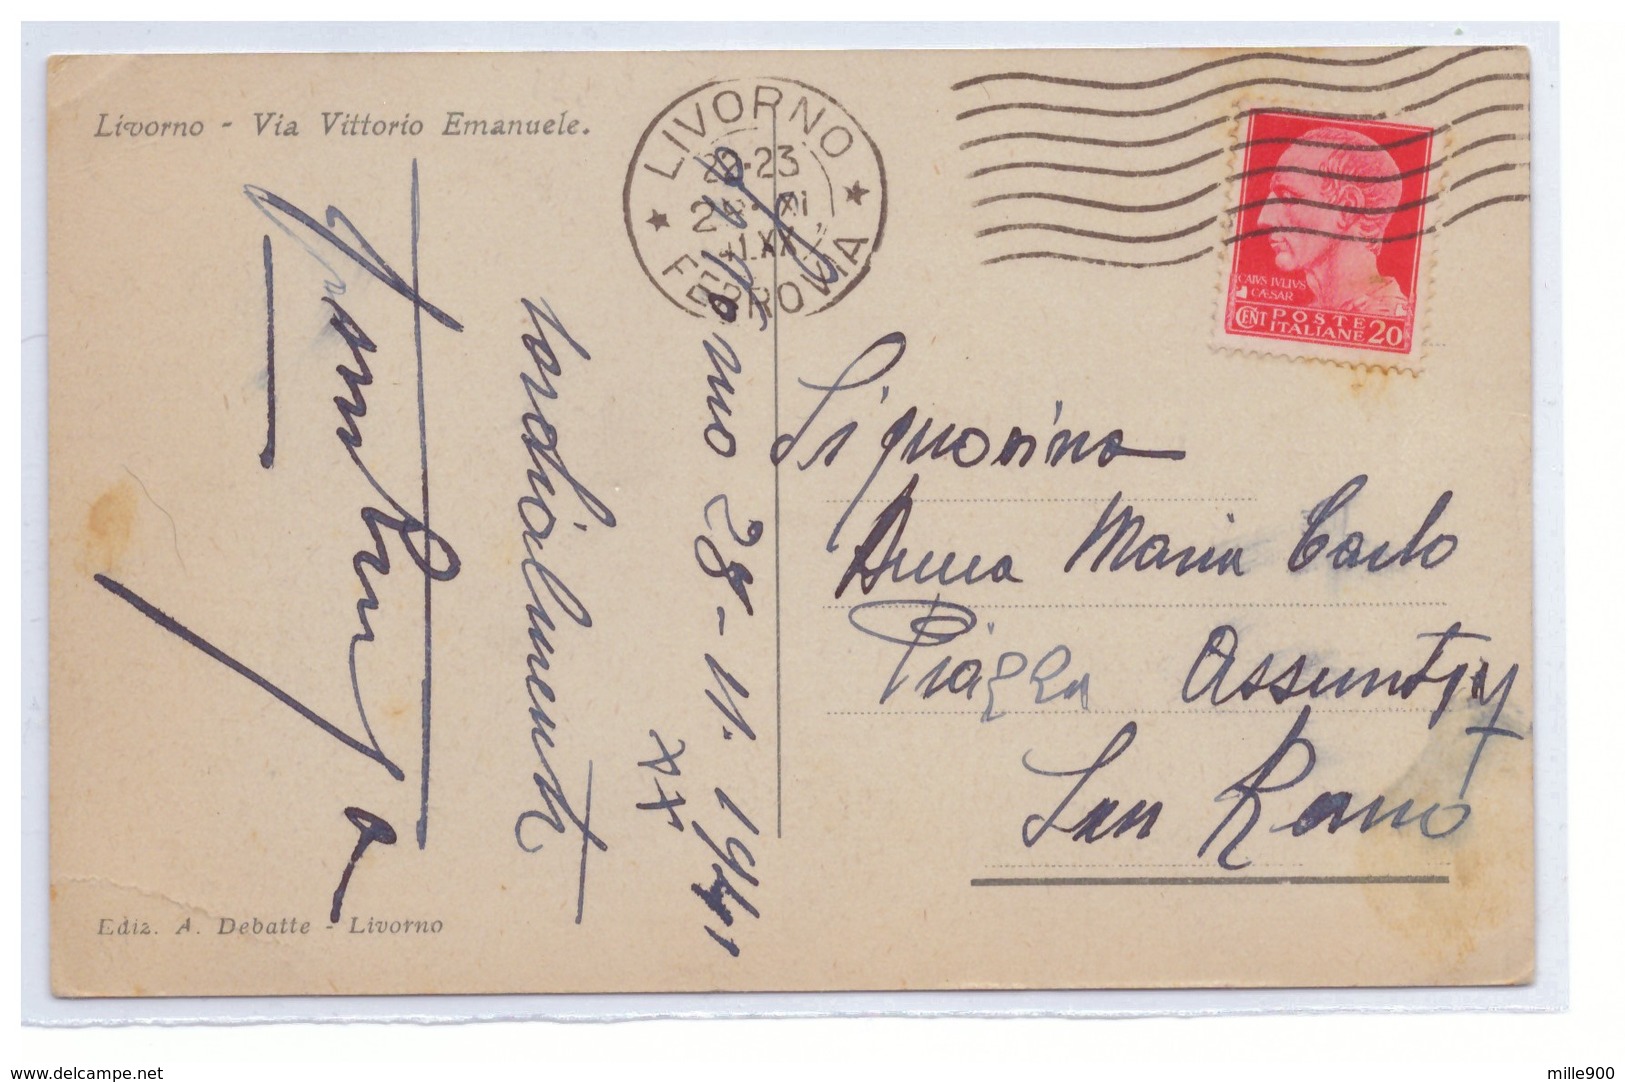 Livorno - Via Vittorio Emanuele.
LIVORNO
22-23
XI
FERROVIA
CAIVS IVLIVS
CÆSAR
CENT POSTE
ITALIANE 20
Livorno 28-11.1941
XX
Cordialmente
Signorina
Anna Maria Carlo
Piazza Assunta
San Remo
Ediz. A. Debatte - Livorno
www.delcampe.net
mille900